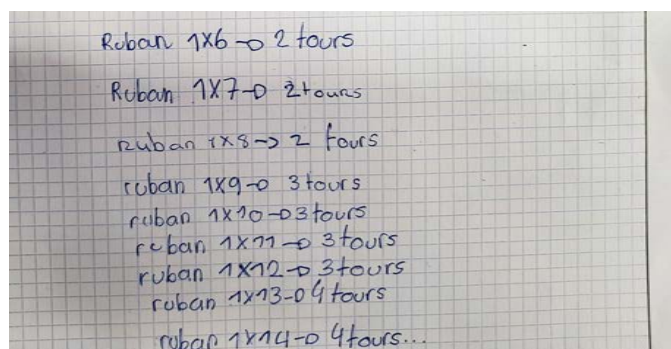 Ruban 1x6 → 2 tours
Ruban 1x7 → 2 tours
Ruban 1x8 → 2 tours
ruban 1x9 → 3 tours
ruban 1x10 → 3 tours
ruban 1x11 → 3 tours
ruban 1x12 → 3 tours
ruban 1x13 → 4 tours
ruban 1x14 → 4 tours...